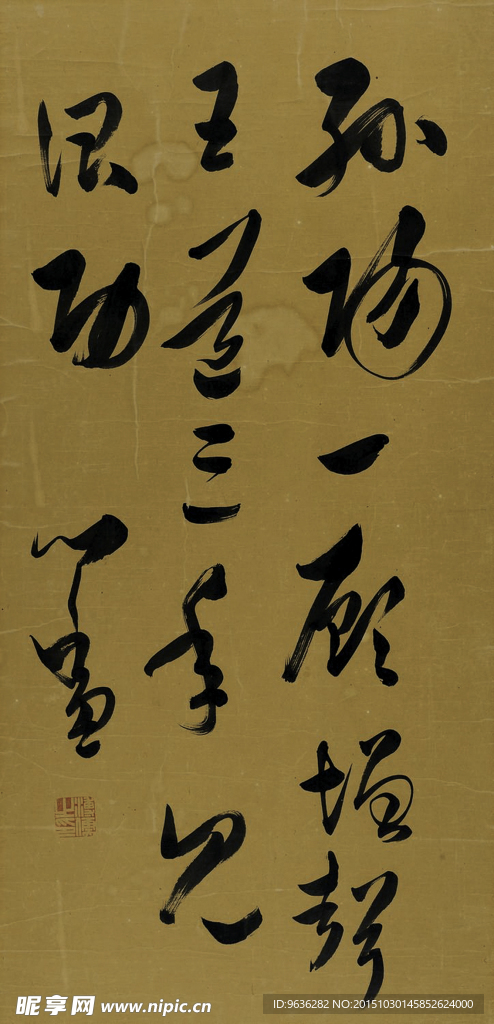 孙阳一顾增声
王道三年见
深功
昵享网 www.nipic.cn
ID:9636282 NO:20151030145852624000